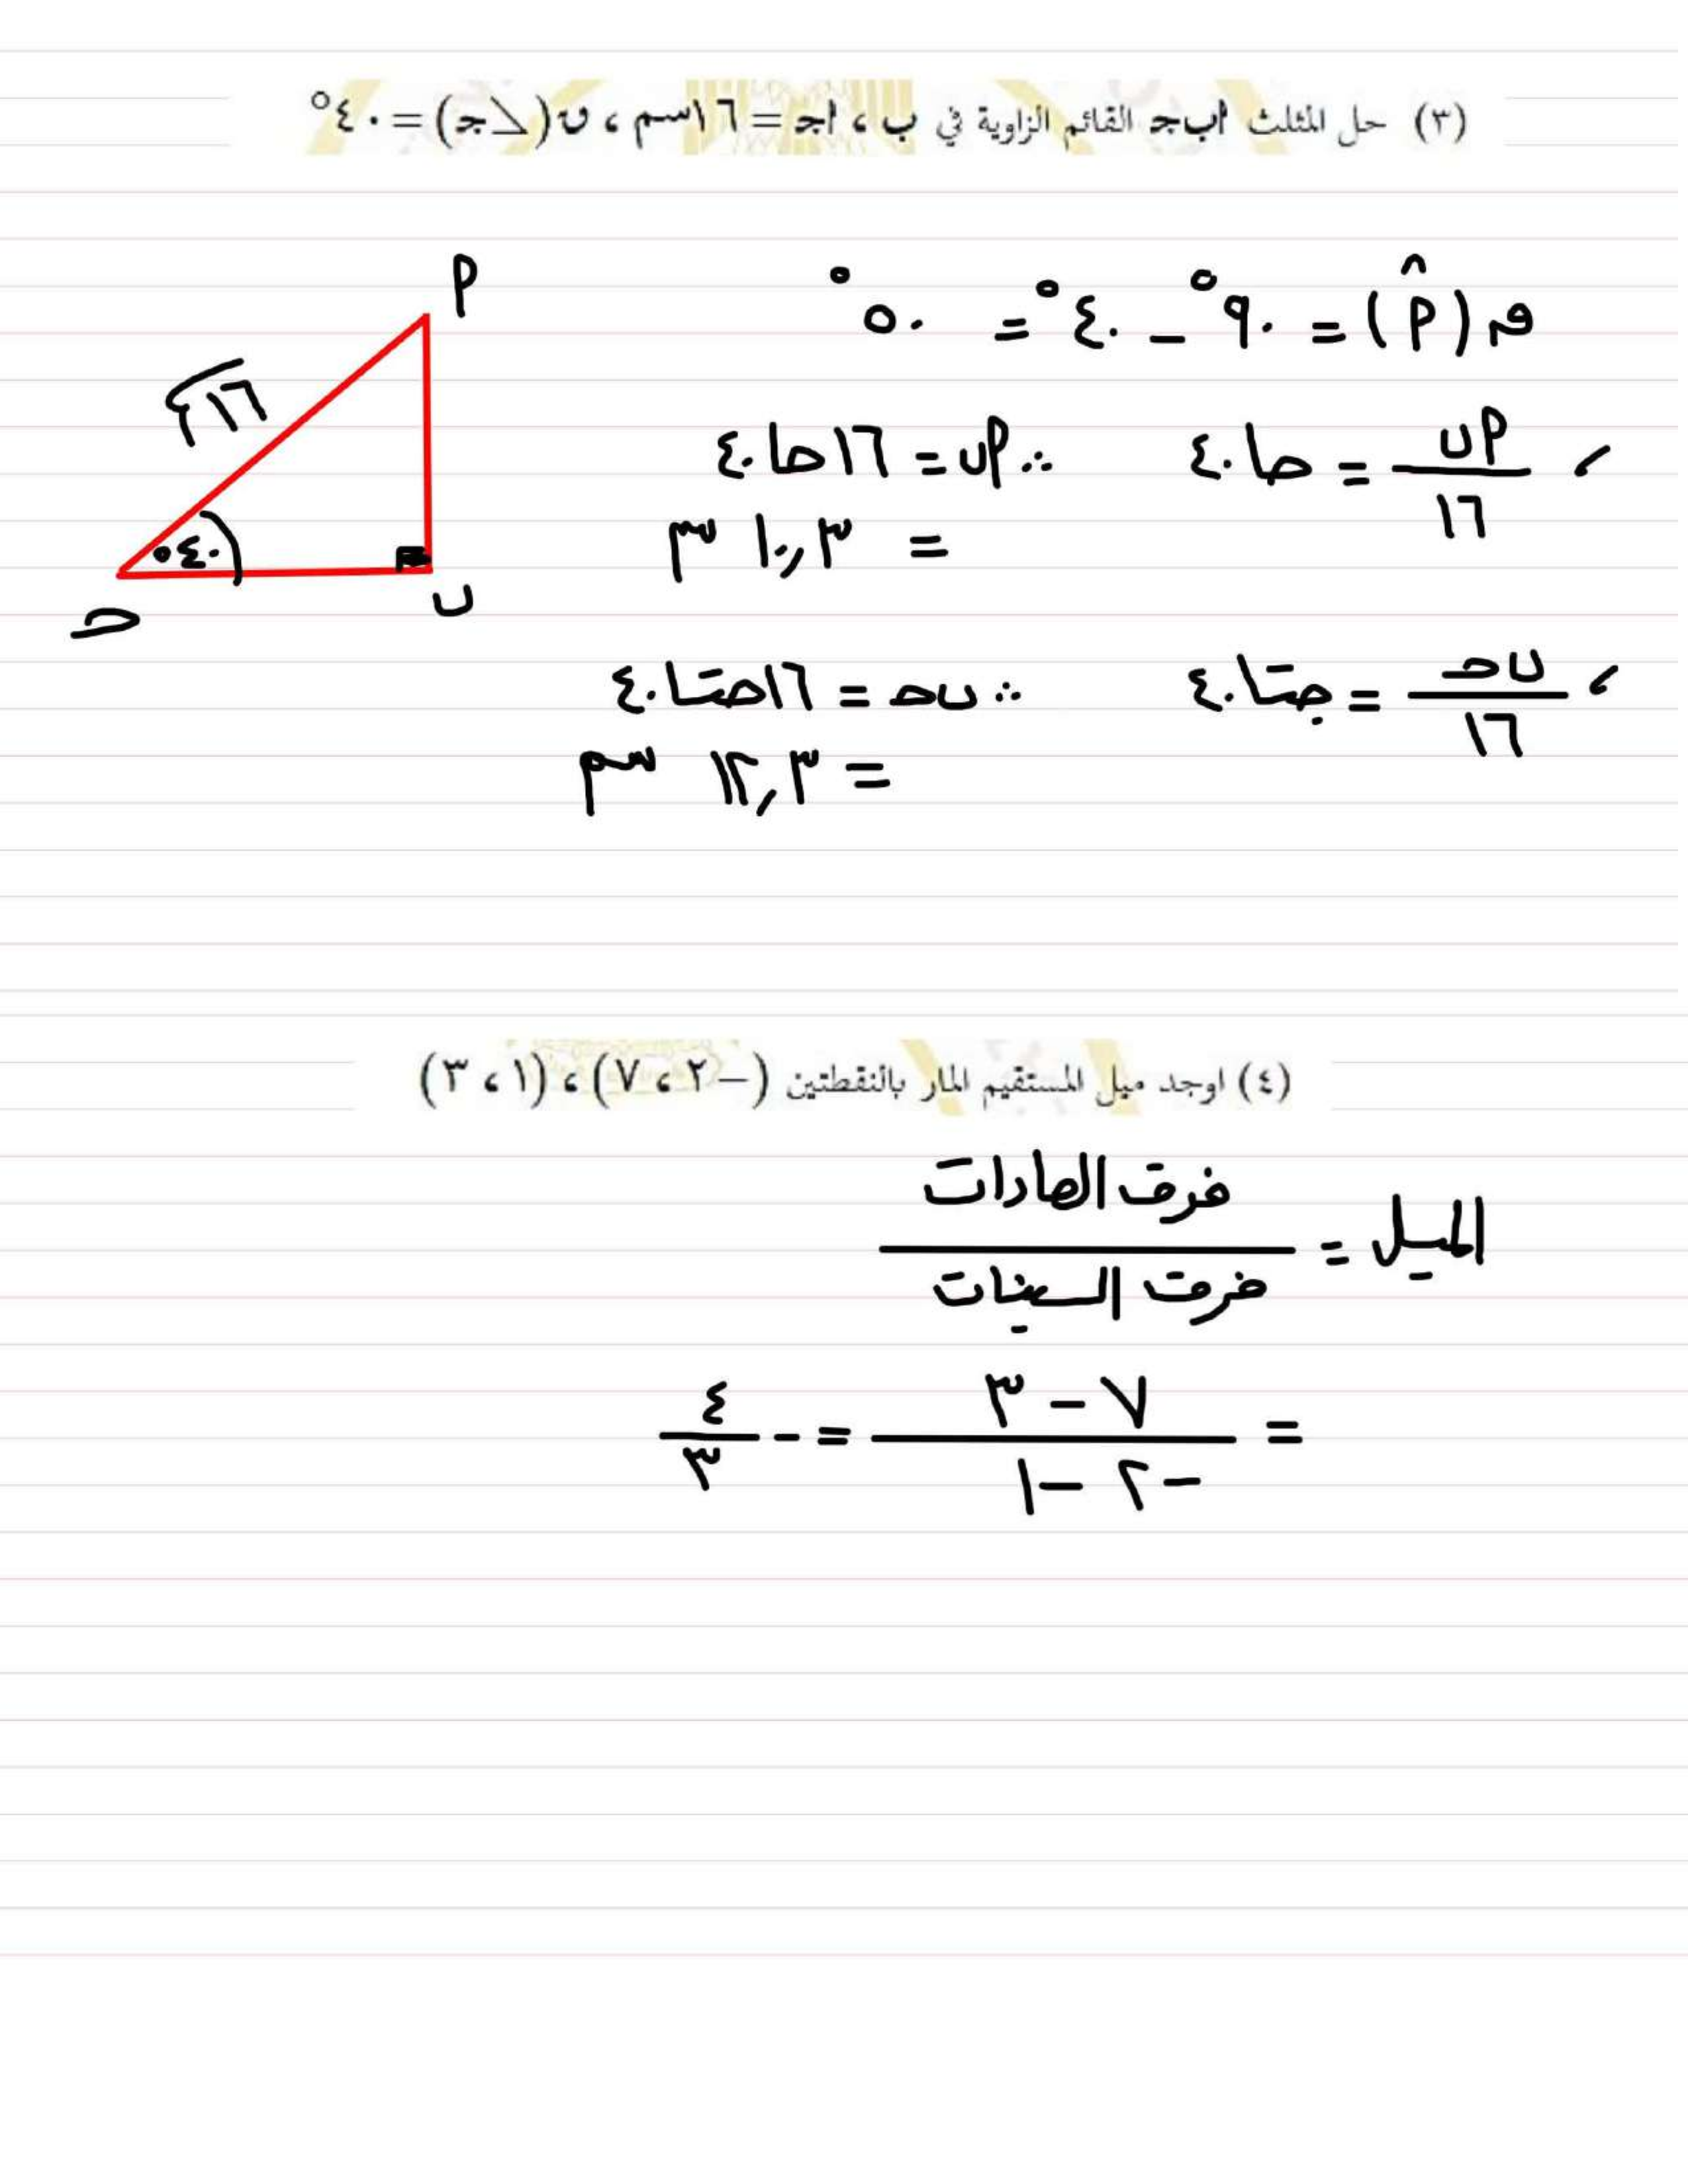 (٣) حل المثلث ابجـ القائم الزاوية في ب ، اجـ = ١٦سم ، ق(∠جـ) = ٤٠°
م(أ^) = ٩٠° − ٤٠° = ٥٠°
أ
١٦سم
٤٠°
حـ
ب
، أب/١٦ = حا٤٠ ∴ أب = ١٦حا٤٠
= ١٠,٣ سم
، بحـ/١٦ = جتا٤٠ ∴ بحـ = ١٦حتا٤٠
= ١٢,٣ سم
(٤) اوجد ميل المستقيم المار بالنقطتين (−٢ ، ٧) ، (١ ، ٣)
الميل = فرق الصادات / فرق السينات
= (٧ − ٣) / (−٢ − ١) = − ٤/٣